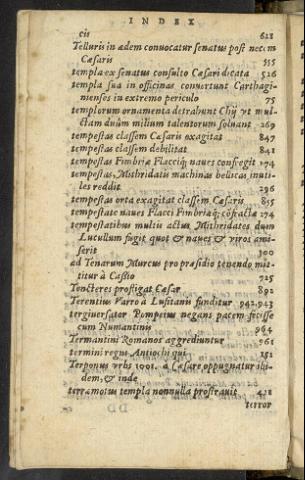 INDEX
cis 621
Telluris in ædem conuocatur senatus post necem
Cæsaris 535
templa ex senatus consulto Cæsari dicata 526
templa sua in officinas conuertunt Carthagi-
nenses in extremo periculo 75
templorum ornamenta detrahunt Chij vt mul-
ctam duûm milium talentorum soluant 269
tempestas classem Cæsaris exagitat 847
tempestas classem debilitat 841
tempestas Fimbriæ Flacciq; naues confregit 274
tempestas, Mithridatis machinas bellicas inuti-
les reddit 296
tempestas orta exagitat classem Cæsaris 855
tempestate naues Flacci Fimbriæq; cõfractæ 274
tempestatibus multis actus Mithridates dum
Lucullum fugit quot & naues & viros ami-
serit 300
ad Tenarum Murcus pro præsidio tenendo mit-
titur à Cassio 725
Toncteres profligat Cæsar 892
Terentius Varro à Lusitanis funditur 942.943
tergiuersator Pompeius negans pacem fecisse
cum Numantinis 964
Termantini Romanos aggrediuntur 961
termini regni Antiochi qui 151
Terponus vrbs 1001. à Cæsare oppugnatur ibi-
dem, & inde
terræmotus templa nonnulla prostrauit 431
DD terror